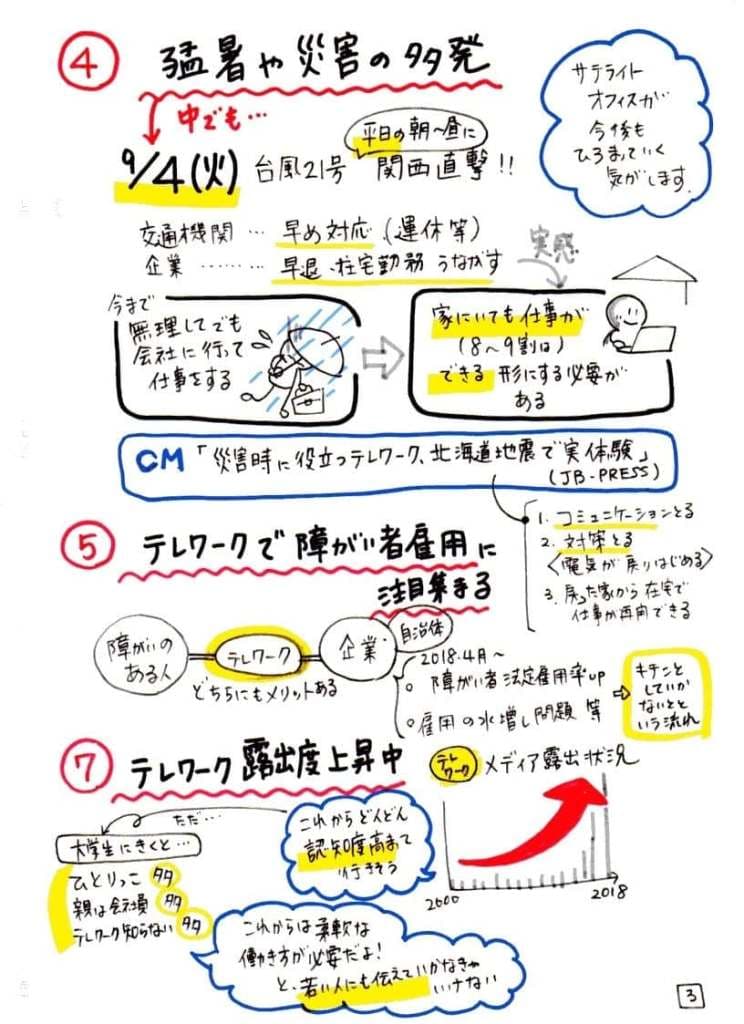 ④ 猛暑や災害の多発
サテライト
オフィスが
今後も
ひろまっていく
気がします。
中でも…
平日の朝〜昼に
9/4(火) 台風21号 関西直撃!!
交通機関 … 早め対応(運休等)
企業 …… 早退、在宅勤務 うながす
実感
今まで
無理してでも
会社に行って
仕事をする
家にいても仕事が
(8〜9割は)
できる 形にする必要が
ある
CM「災害時に役立つテレワーク、北海道地震で実体験」
(JB-PRESS)
1. コミュニケーションとる
2. 対策とる
〈電気が戻りはじめる〉
3. 戻った家から在宅で
仕事が再開できる
⑤ テレワークで障がい者雇用に
注目集まる
障がいの
ある人
テレワーク
企業・
自治体
どちらにもメリットある
2018.4月〜
○ 障がい者法定雇用率up
○ 雇用の水増し問題 等
キチンと
していか
ないとと
いう流れ
⑦ テレワーク露出度上昇中
テレ
ワーク
メディア露出状況
2000
2018
ただ…
大学生にきくと…
ひとりっこ 多
親は会社員 多
テレワーク知らない 多
これからどんどん
認知度高まって
行きそう
これからは柔軟な
働き方が必要だよ!
と、若い人にも伝えていかなきゃ
いけない
3